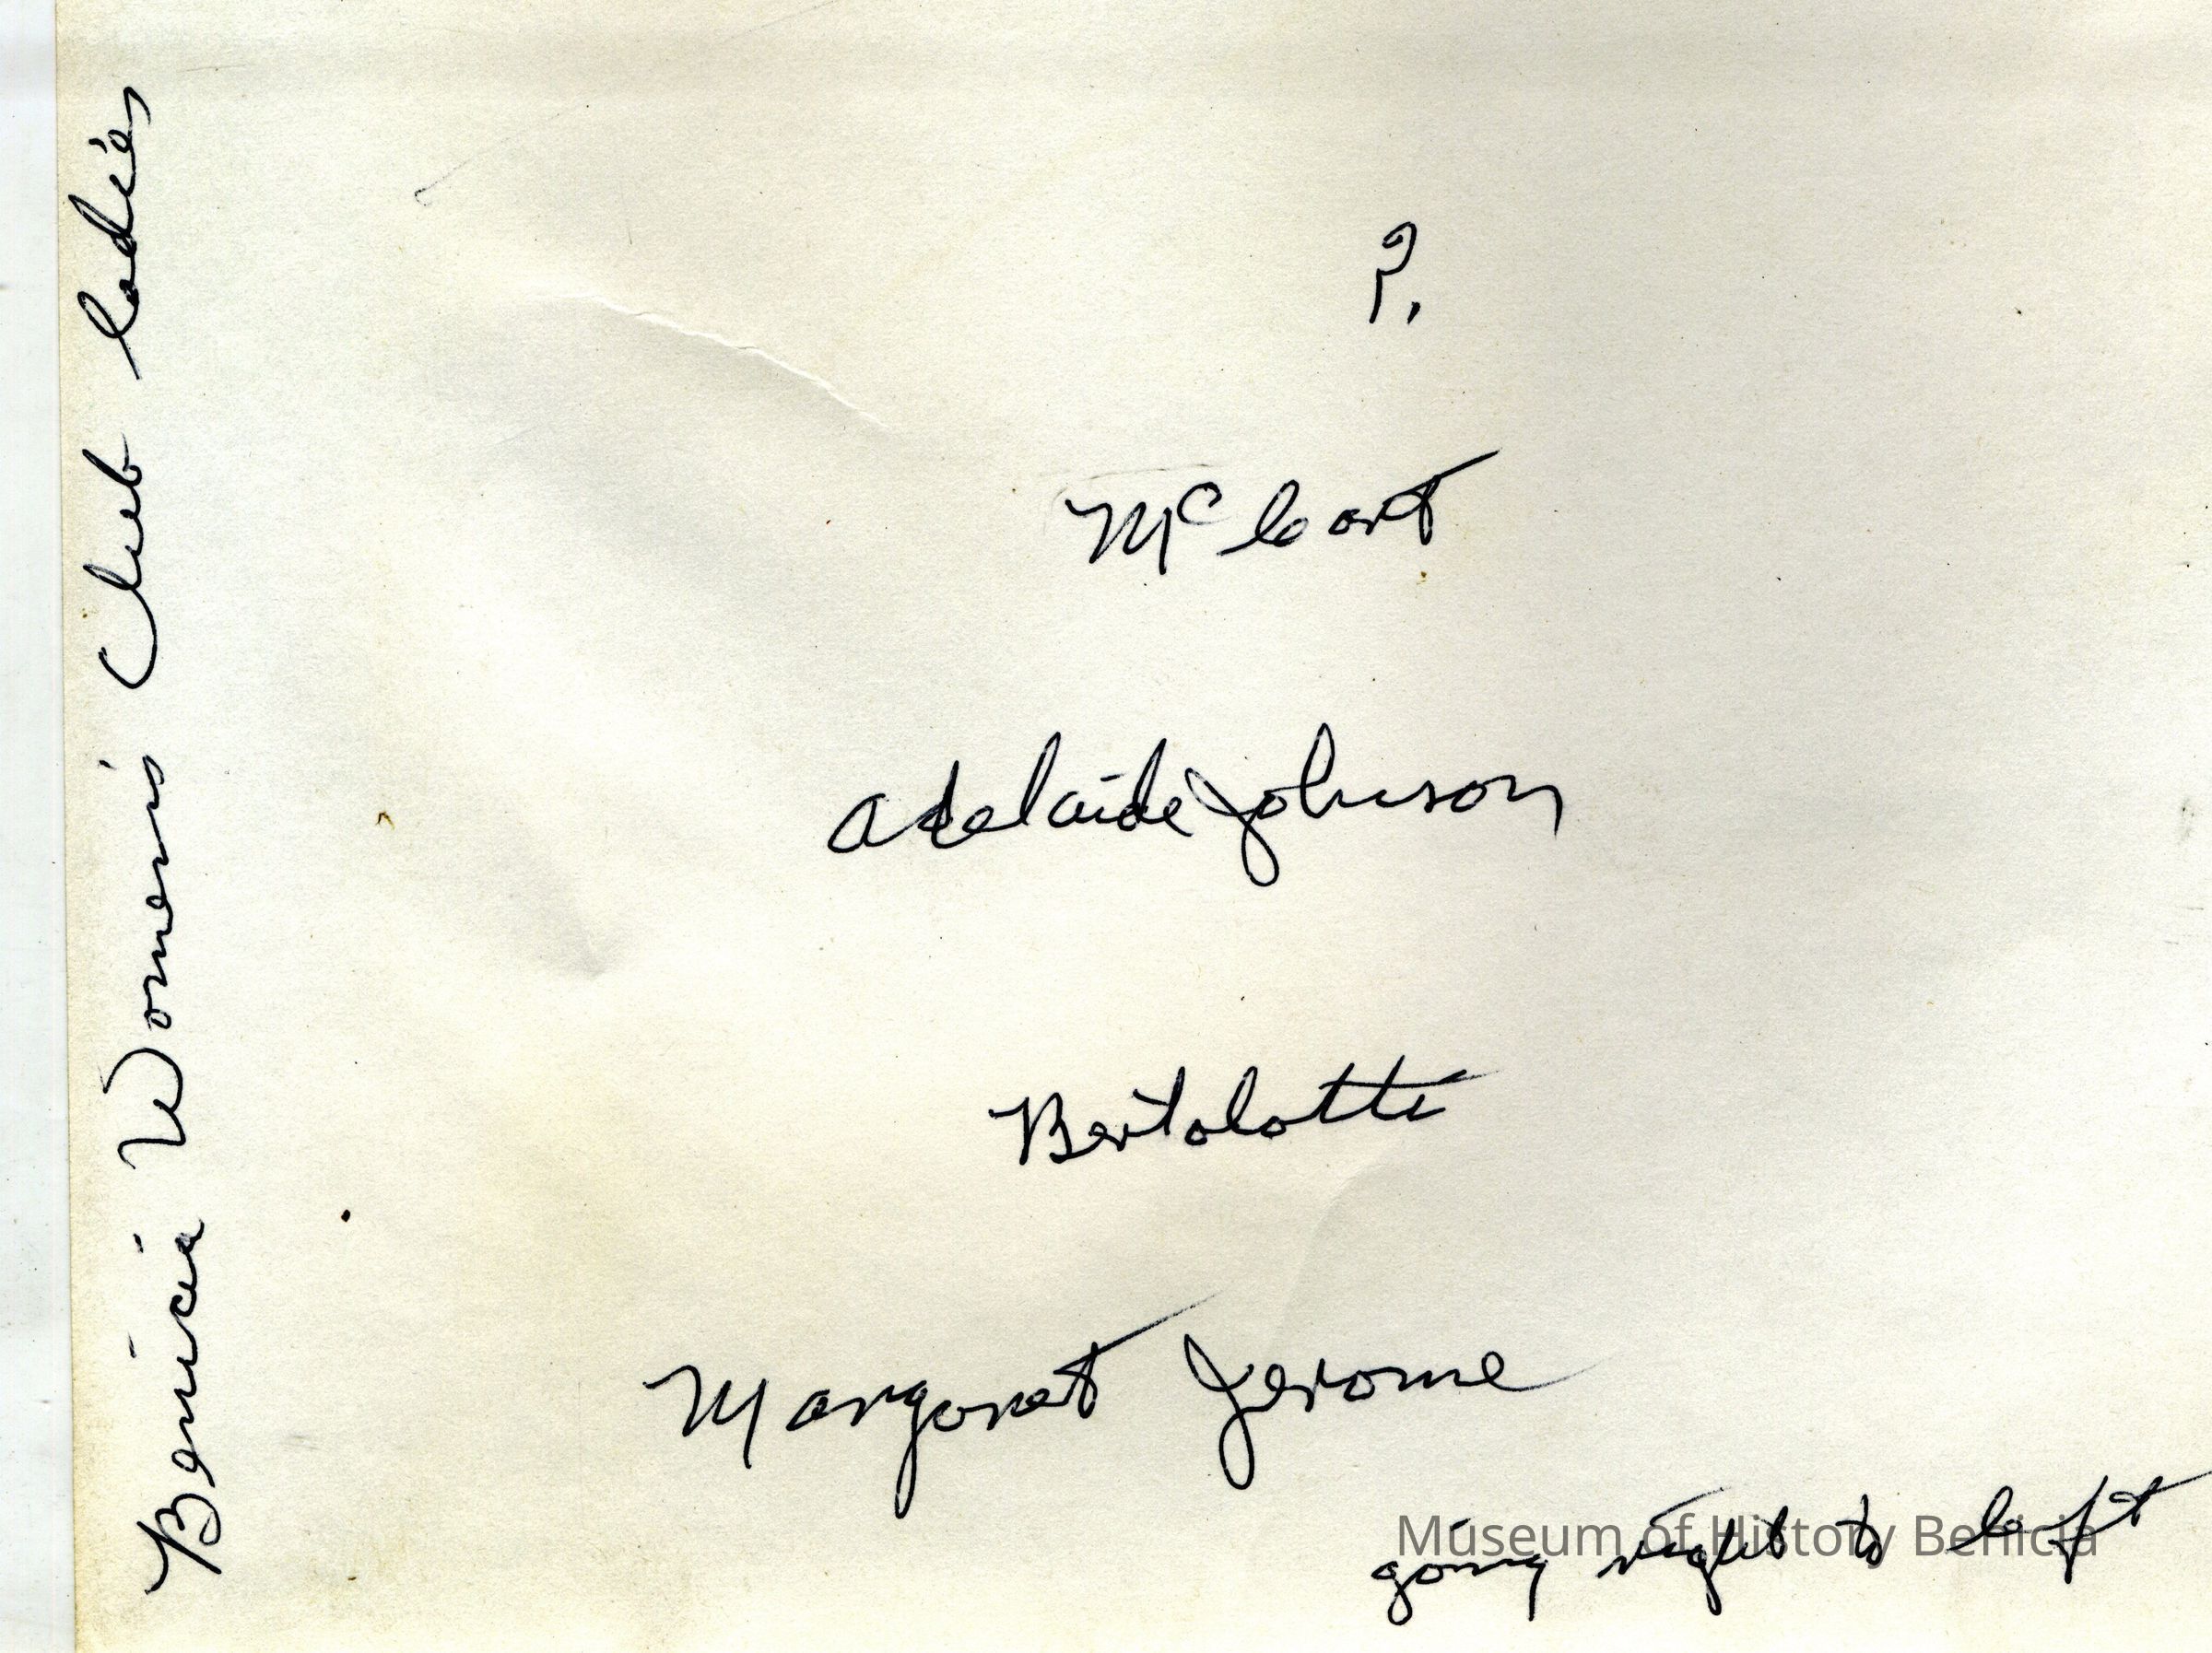 Benicia Women's Club ladies
?
Adelaide Johnson
Bertolotti
Margaret Jerome
going right to left
Museum of History Benicia